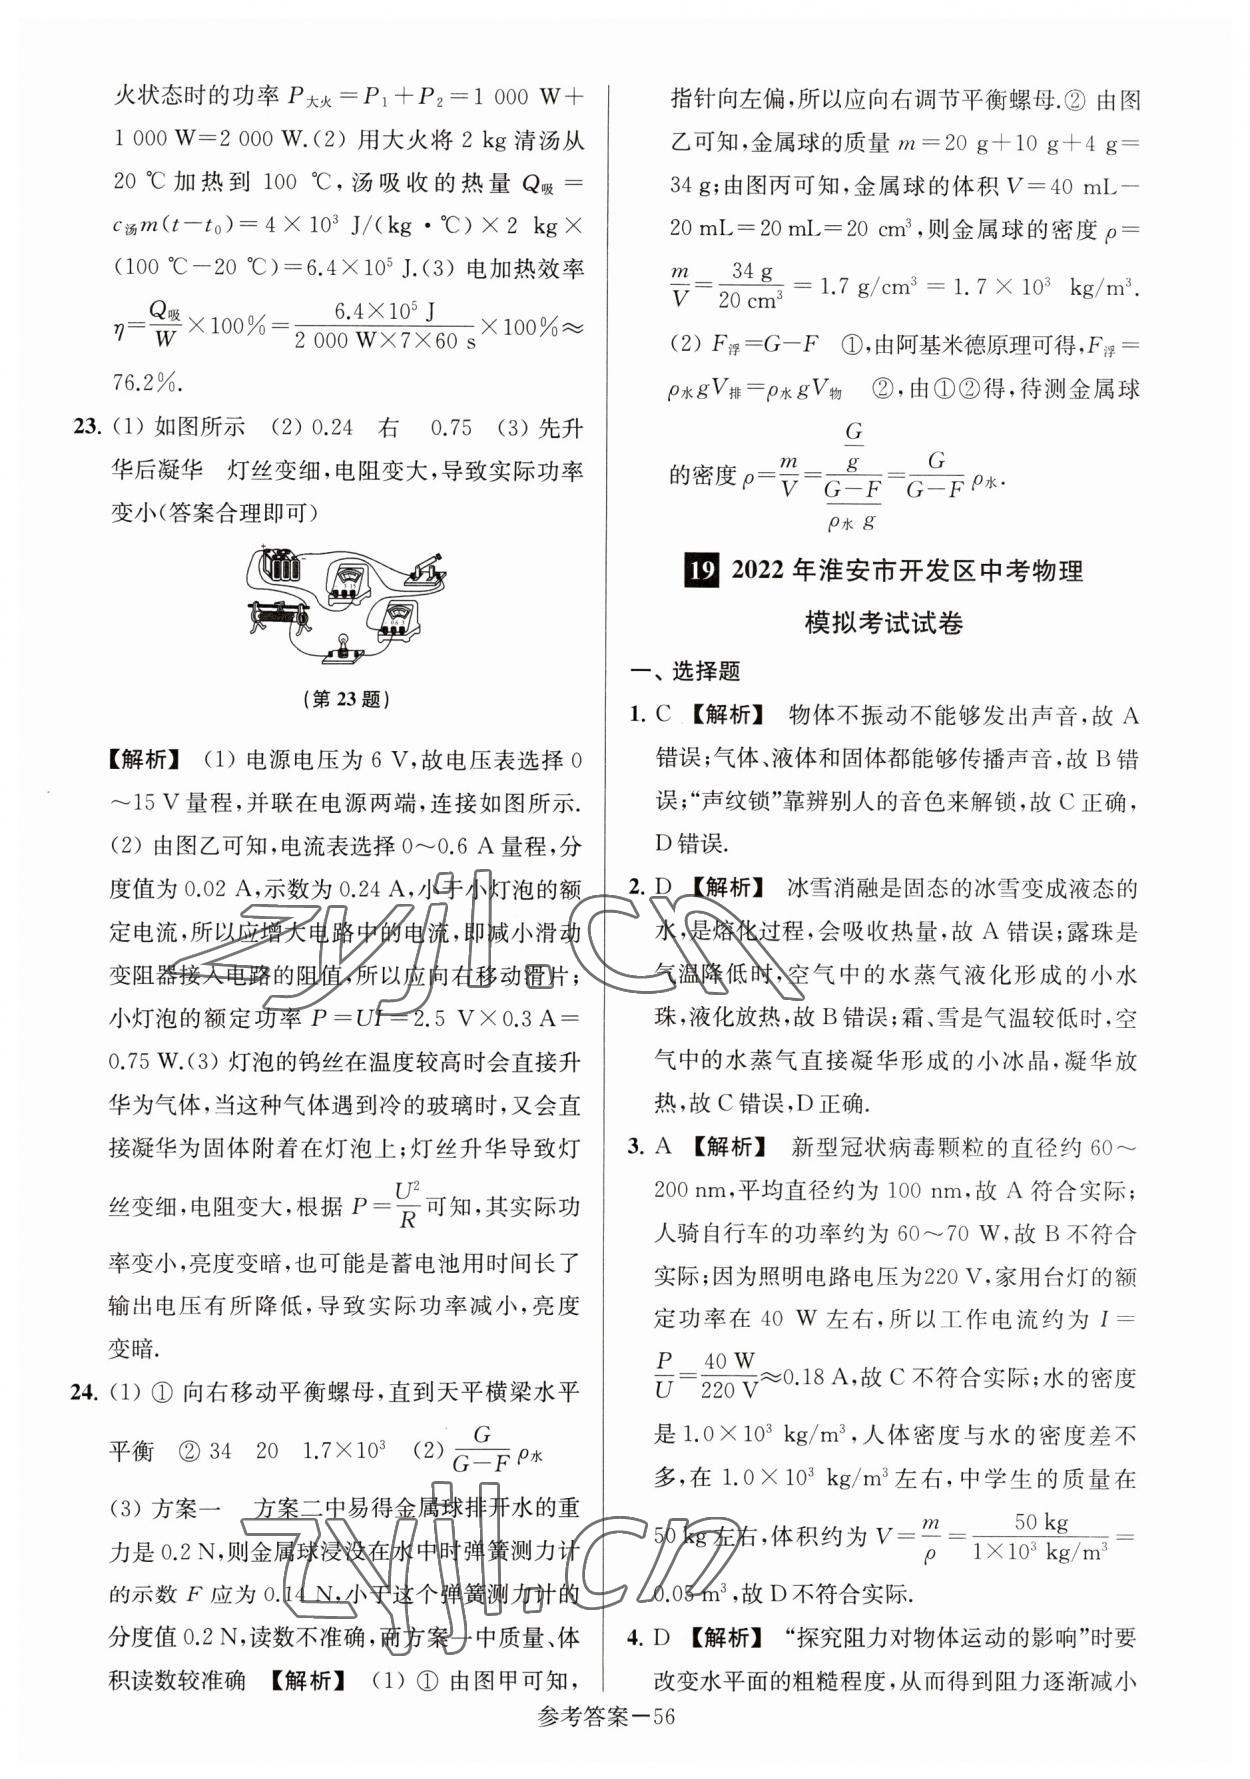 火状态时的功率 P大火＝P₁＋P₂＝1 000 W＋
1 000 W＝2 000 W.(2) 用大火将 2 kg 清汤从
20 ℃加热到 100 ℃,汤吸收的热量 Q吸＝
c汤m(t－t₀)＝4×10³ J/(kg·℃)×2 kg×
(100 ℃－20 ℃)＝6.4×10⁵ J.(3) 电加热效率
η＝Q吸/W×100%＝6.4×10⁵ J/2 000 W×7×60 s×100%≈
76.2%.
23. (1) 如图所示 (2) 0.24 右 0.75 (3) 先升
华后凝华 灯丝变细,电阻变大,导致实际功率
变小(答案合理即可)
(第 23 题)
【解析】 (1) 电源电压为 6 V,故电压表选择 0
～15 V 量程,并联在电源两端,连接如图所示.
(2) 由图乙可知,电流表选择 0～0.6 A 量程,分
度值为 0.02 A,示数为 0.24 A,小于小灯泡的额
定电流,所以应增大电路中的电流,即减小滑动
变阻器接入电路的阻值,所以应向右移动滑片;
小灯泡的额定功率 P＝UI＝2.5 V×0.3 A＝
0.75 W.(3) 灯泡的钨丝在温度较高时会直接升
华为气体,当这种气体遇到冷的玻璃时,又会直
接凝华为固体附着在灯泡上;灯丝升华导致灯
丝变细,电阻变大,根据 P＝U²/R可知,其实际功
率变小,亮度变暗,也可能是蓄电池用时间长了
输出电压有所降低,导致实际功率减小,亮度
变暗.
24. (1) ① 向右移动平衡螺母,直到天平横梁水平
平衡 ② 34 20 1.7×10³ (2) G/G－F ρ水
(3) 方案一 方案二中易得金属球排开水的重
力是 0.2 N,则金属球浸没在水中时弹簧测力计
的示数 F 应为 0.14 N,小于这个弹簧测力计的
分度值 0.2 N,读数不准确,而方案一中质量、体
积读数较准确 【解析】 (1) ① 由图甲可知,
指针向左偏,所以应向右调节平衡螺母.② 由图
乙可知,金属球的质量 m＝20 g＋10 g＋4 g＝
34 g;由图丙可知,金属球的体积 V＝40 mL－
20 mL＝20 mL＝20 cm³,则金属球的密度 ρ＝
m/V＝34 g/20 cm³＝1.7 g/cm³＝1.7×10³ kg/m³.
(2) F浮＝G－F ①,由阿基米德原理可得,F浮＝
ρ水gV排＝ρ水gV物 ②,由①②得,待测金属球
的密度 ρ＝m/V＝(G/g)/((G－F)/(ρ水 g))＝G/G－F ρ水.
19 2022 年淮安市开发区中考物理
模拟考试试卷
一、选择题
1. C 【解析】 物体不振动不能够发出声音,故 A
错误;气体、液体和固体都能够传播声音,故 B 错
误;“声纹锁”靠辨别人的音色来解锁,故 C 正确,
D 错误.
2. D 【解析】 冰雪消融是固态的冰雪变成液态的
水,是熔化过程,会吸收热量,故 A 错误;露珠是
气温降低时,空气中的水蒸气液化形成的小水
珠,液化放热,故 B 错误;霜、雪是气温较低时,空
气中的水蒸气直接凝华形成的小冰晶,凝华放
热,故 C 错误,D 正确.
3. A 【解析】 新型冠状病毒颗粒的直径约 60～
200 nm,平均直径约为 100 nm,故 A 符合实际;
人骑自行车的功率约为 60～70 W,故 B 不符合
实际;因为照明电路电压为220 V,家用台灯的额
定功率在 40 W 左右,所以工作电流约为 I＝
P/U＝40 W/220 V≈0.18 A,故 C 不符合实际;水的密度
是 1.0×10³ kg/m³,人体密度与水的密度差不
多,在 1.0×10³ kg/m³左右,中学生的质量在
50 kg左右,体积约为 V＝m/ρ＝50 kg/1×10³ kg/m³＝
0.05 m³,故 D 不符合实际.
4. D 【解析】 “探究阻力对物体运动的影响”时要
改变水平面的粗糙程度,从而得到阻力逐渐减小
参考答案－56
zyjl.cn
zyjl.cn